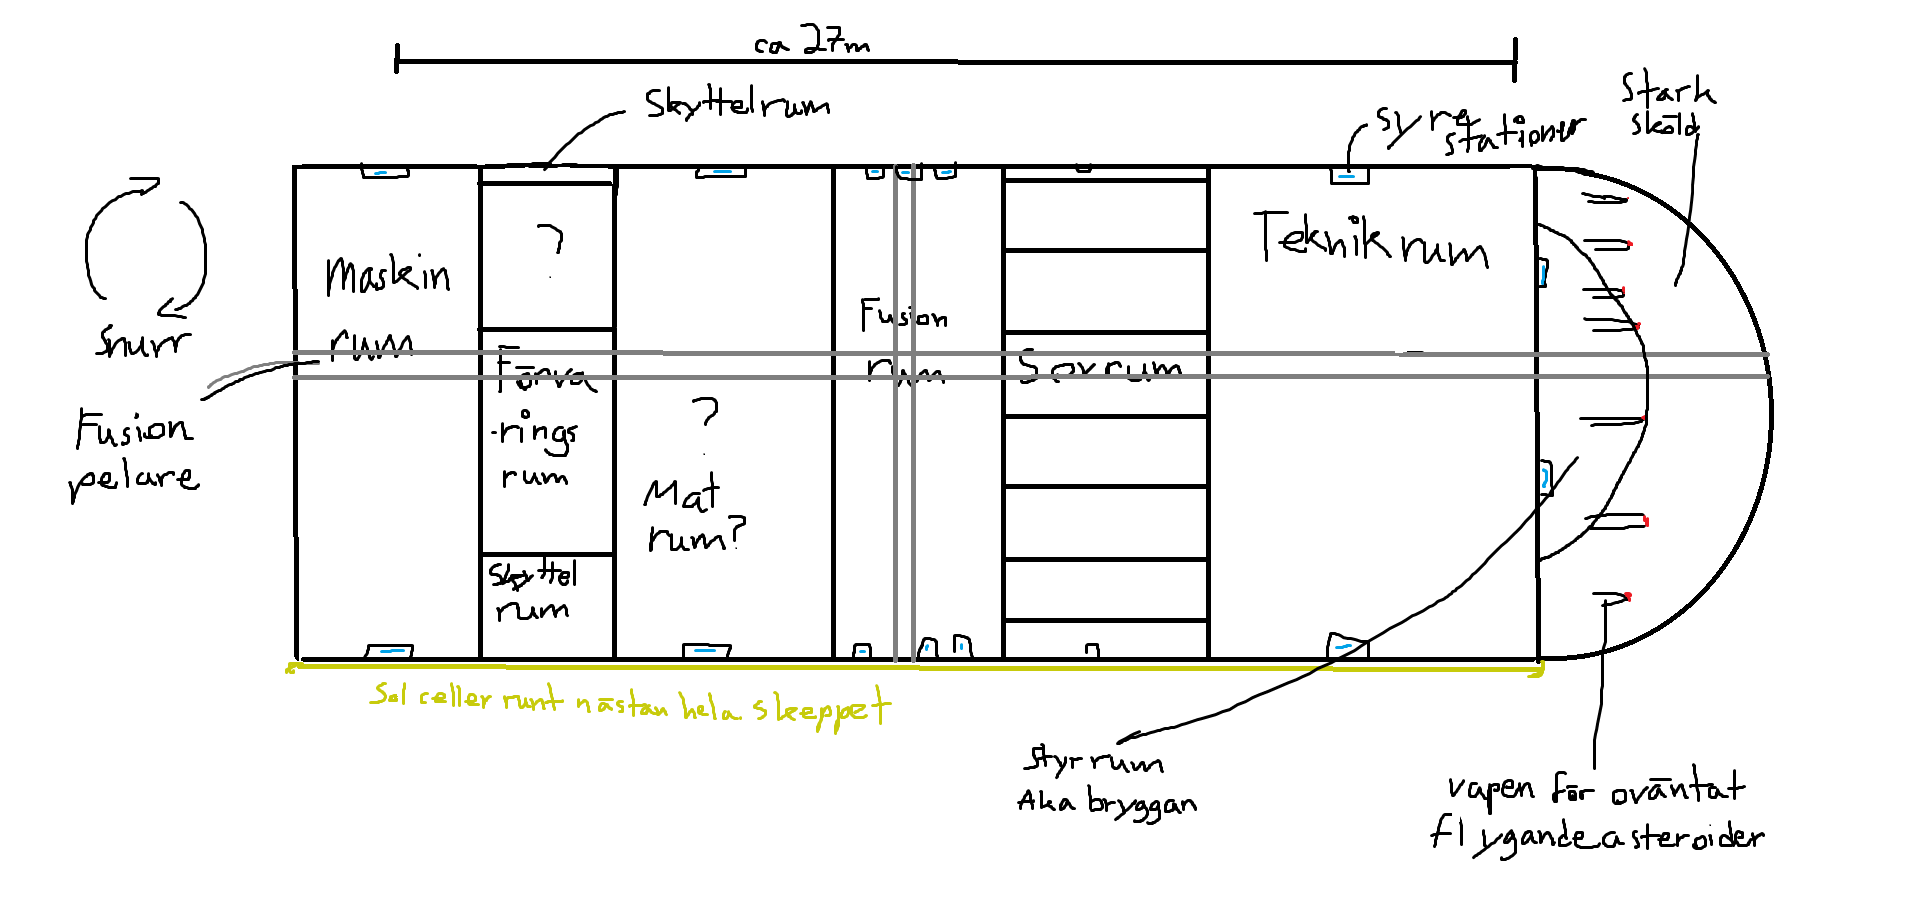 ca 27m
Skyttelrum
syre
stationer
Stark
sköld
Snurr
Fusion
pelare
Maskin
rum
?
Förva
-rings
rum
Skyttel
rum
?
Mat
rum?
Fusion
rum
Sovrum
Teknikrum
Sol celler runt nästan hela skeppet
Styrrum
Aka bryggan
vapen för oväntat
flygande asteroider